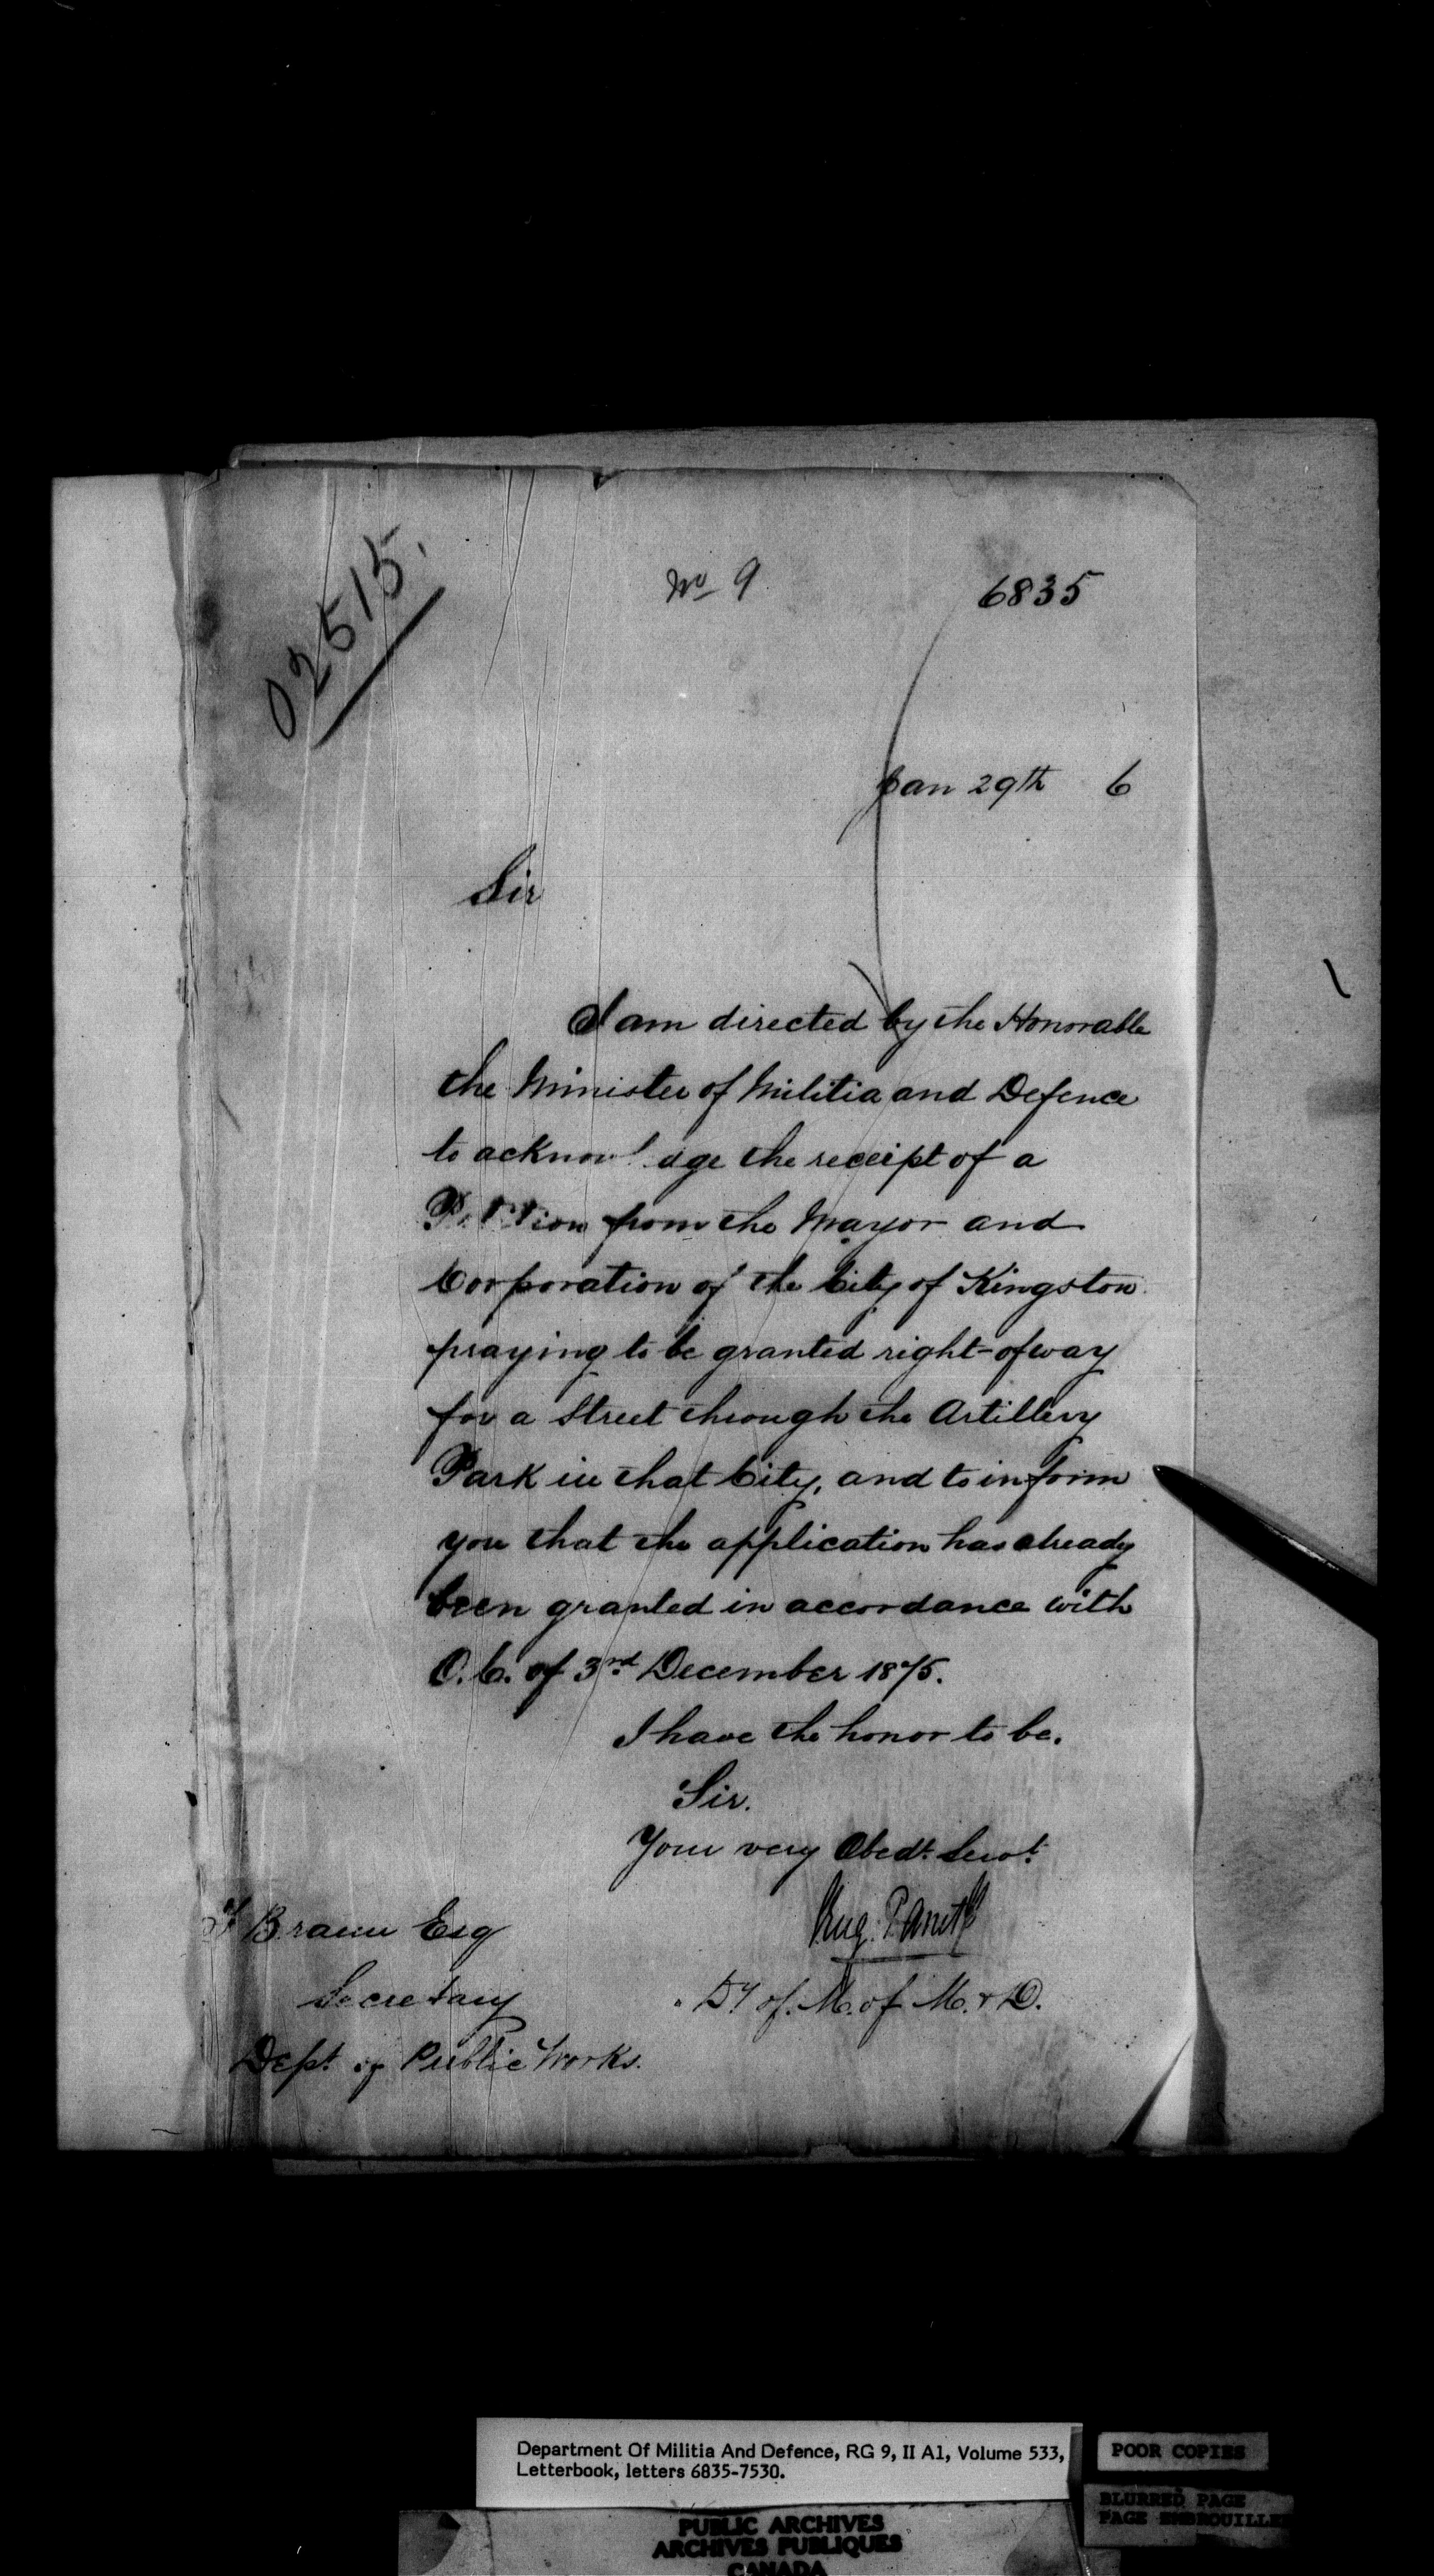 02515.
No 9
6835
Jan 29th 6
Sir
I am directed by the Honorable
the Minister of Militia and Defence
to acknowledge the receipt of a
Petition from the Mayor and
Corporation of the City of Kingston
praying to be granted right-of way
for a Street through the Artillery
Park in that City, and to inform
you that the application has already
been granted in accordance with
O.C. of 3rd December 1875.
I have the honor to be.
Sir.
Your very Obedt. Servt.
Eug. Panet
Dy of. M. of M. & D.
F Braun Esq
Secretary
Dept of Public Works.
Department Of Militia And Defence, RG 9, II A1, Volume 533,
Letterbook, letters 6835-7530.
POOR COPIES
BLURRED PAGE
PAGE EMBROUILLE
PUBLIC ARCHIVES
ARCHIVES PUBLIQUES
CANADA